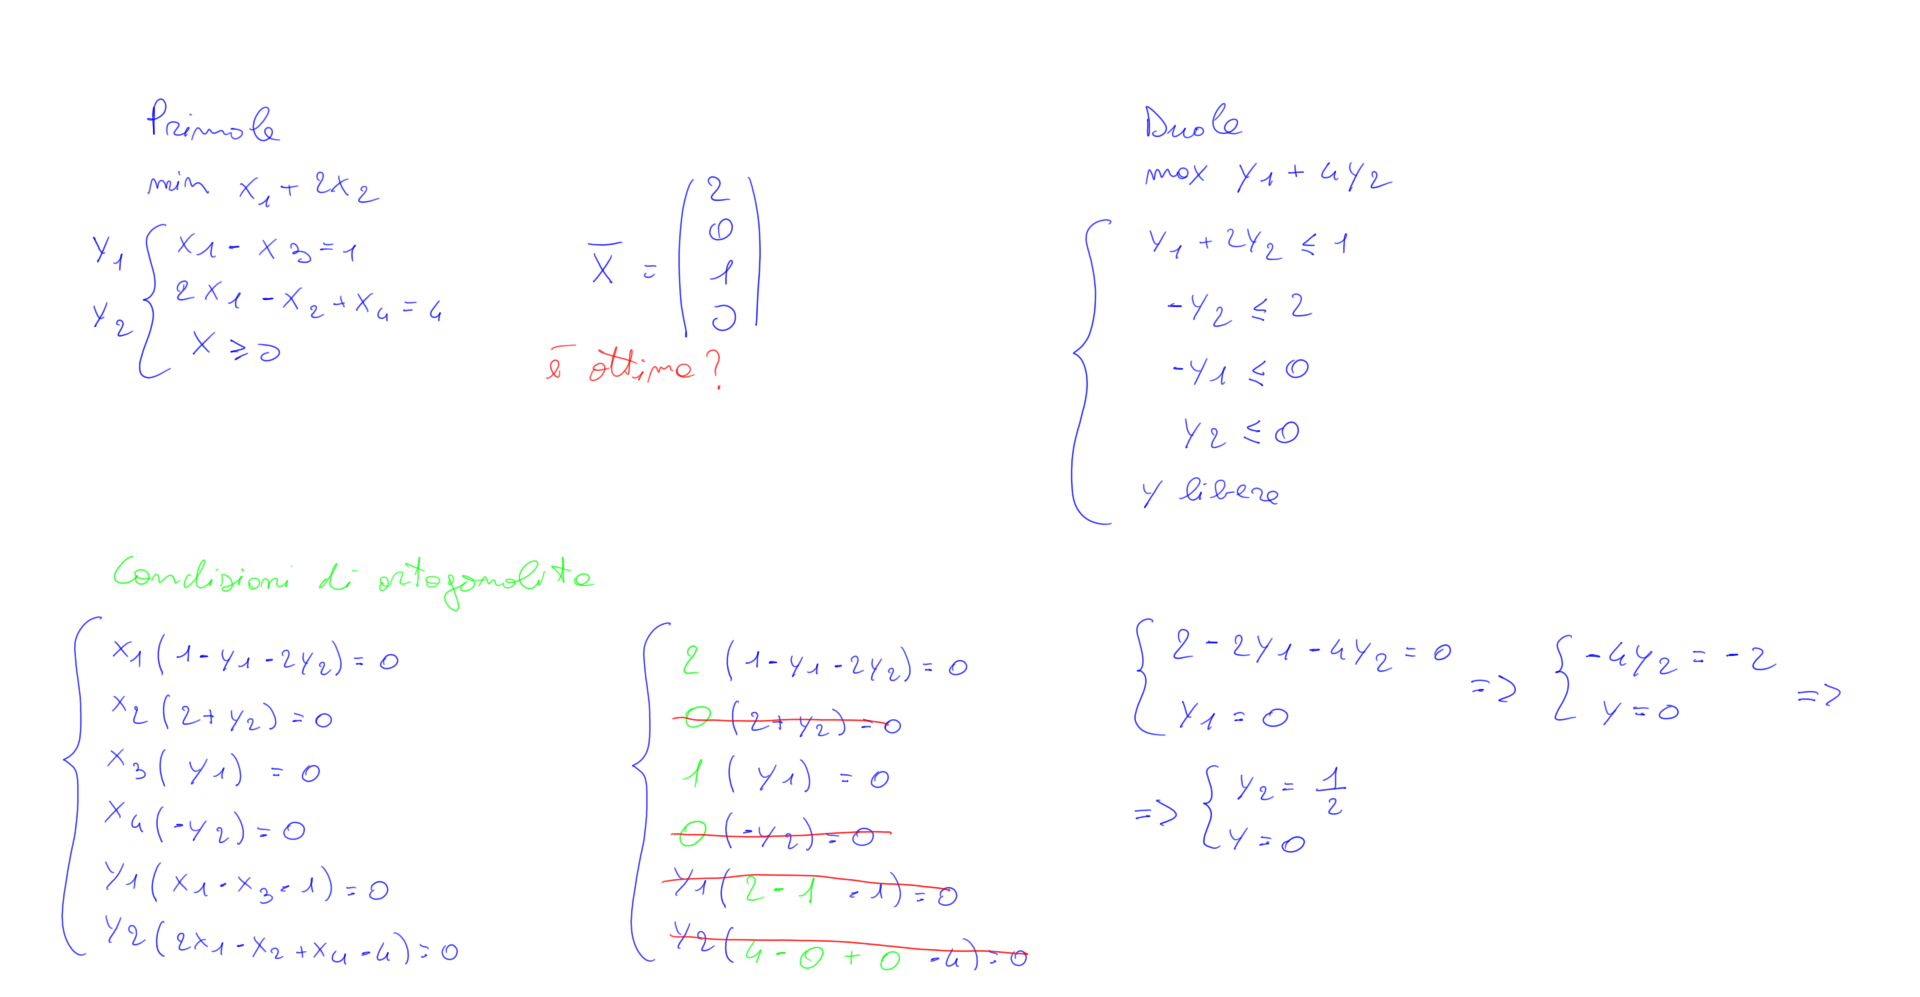 Primale
min x1 + 2x2
y1 x1 - x3 = 1
y2 2x1 - x2 + x4 = 4
x ≥ 0
x̄ = (2 0 1 0)
è ottima?
Duale
max y1 + 4y2
y1 + 2y2 ≤ 1
-y2 ≤ 2
-y1 ≤ 0
y2 ≤ 0
y libere
Condizioni di ortogonalità
x1(1 - y1 - 2y2) = 0
x2(2 + y2) = 0
x3(y1) = 0
x4(-y2) = 0
y1(x1 - x3 - 1) = 0
y2(2x1 - x2 + x4 - 4) = 0
2 (1 - y1 - 2y2) = 0
0 (2 + y2) = 0
1 (y1) = 0
0 (-y2) = 0
y1(2 - 1 - 1) = 0
y2(4 - 0 + 0 - 4) = 0
2 - 2y1 - 4y2 = 0
y1 = 0
=> -4y2 = -2
y = 0
=>
=> y2 = 1/2
y = 0